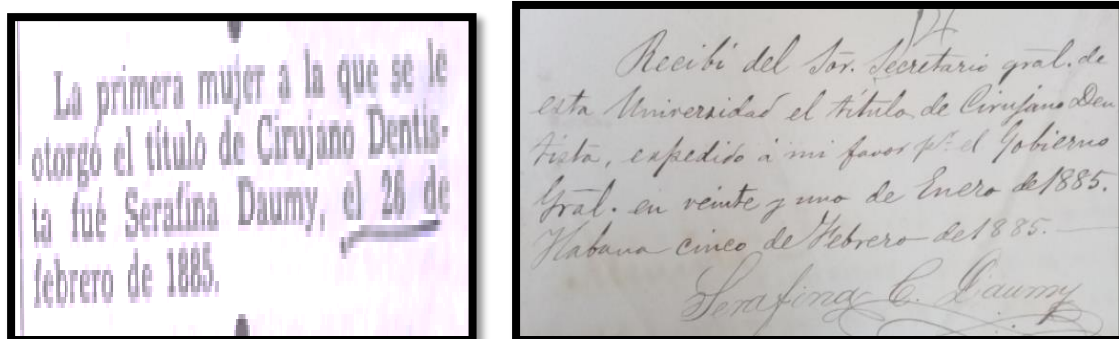 La primera mujer a la que se le
otorgó el título de Cirujano Dentis-
ta fué Serafina Daumy, el 26 de
febrero de 1885.
Recibí del Sor. Secretario gral. de
esta Universidad el título de Cirujano Den
tista, expedido á mi favor pr. el Gobierno
Gral. en veinte y uno de Enero de 1885.
Habana cinco de Febrero de 1885.
Serafina C. Daumy